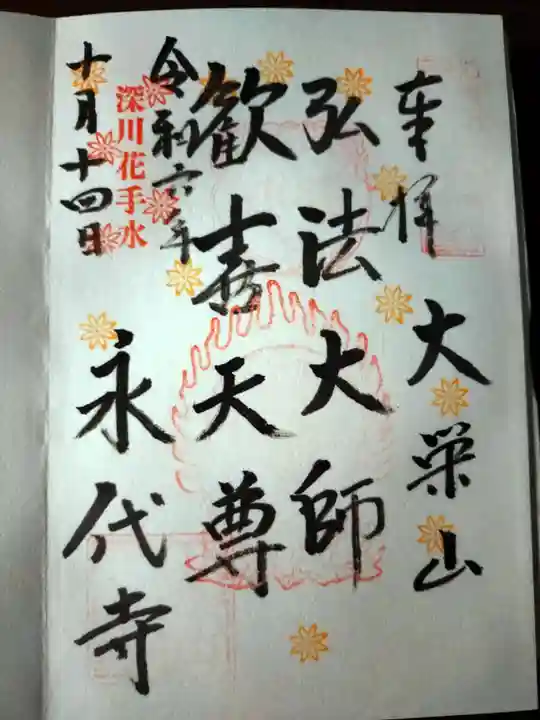 奉拝
大栄山
弘法大師
歓喜天尊
令和六年
深川花手水
十月十四日
永代寺